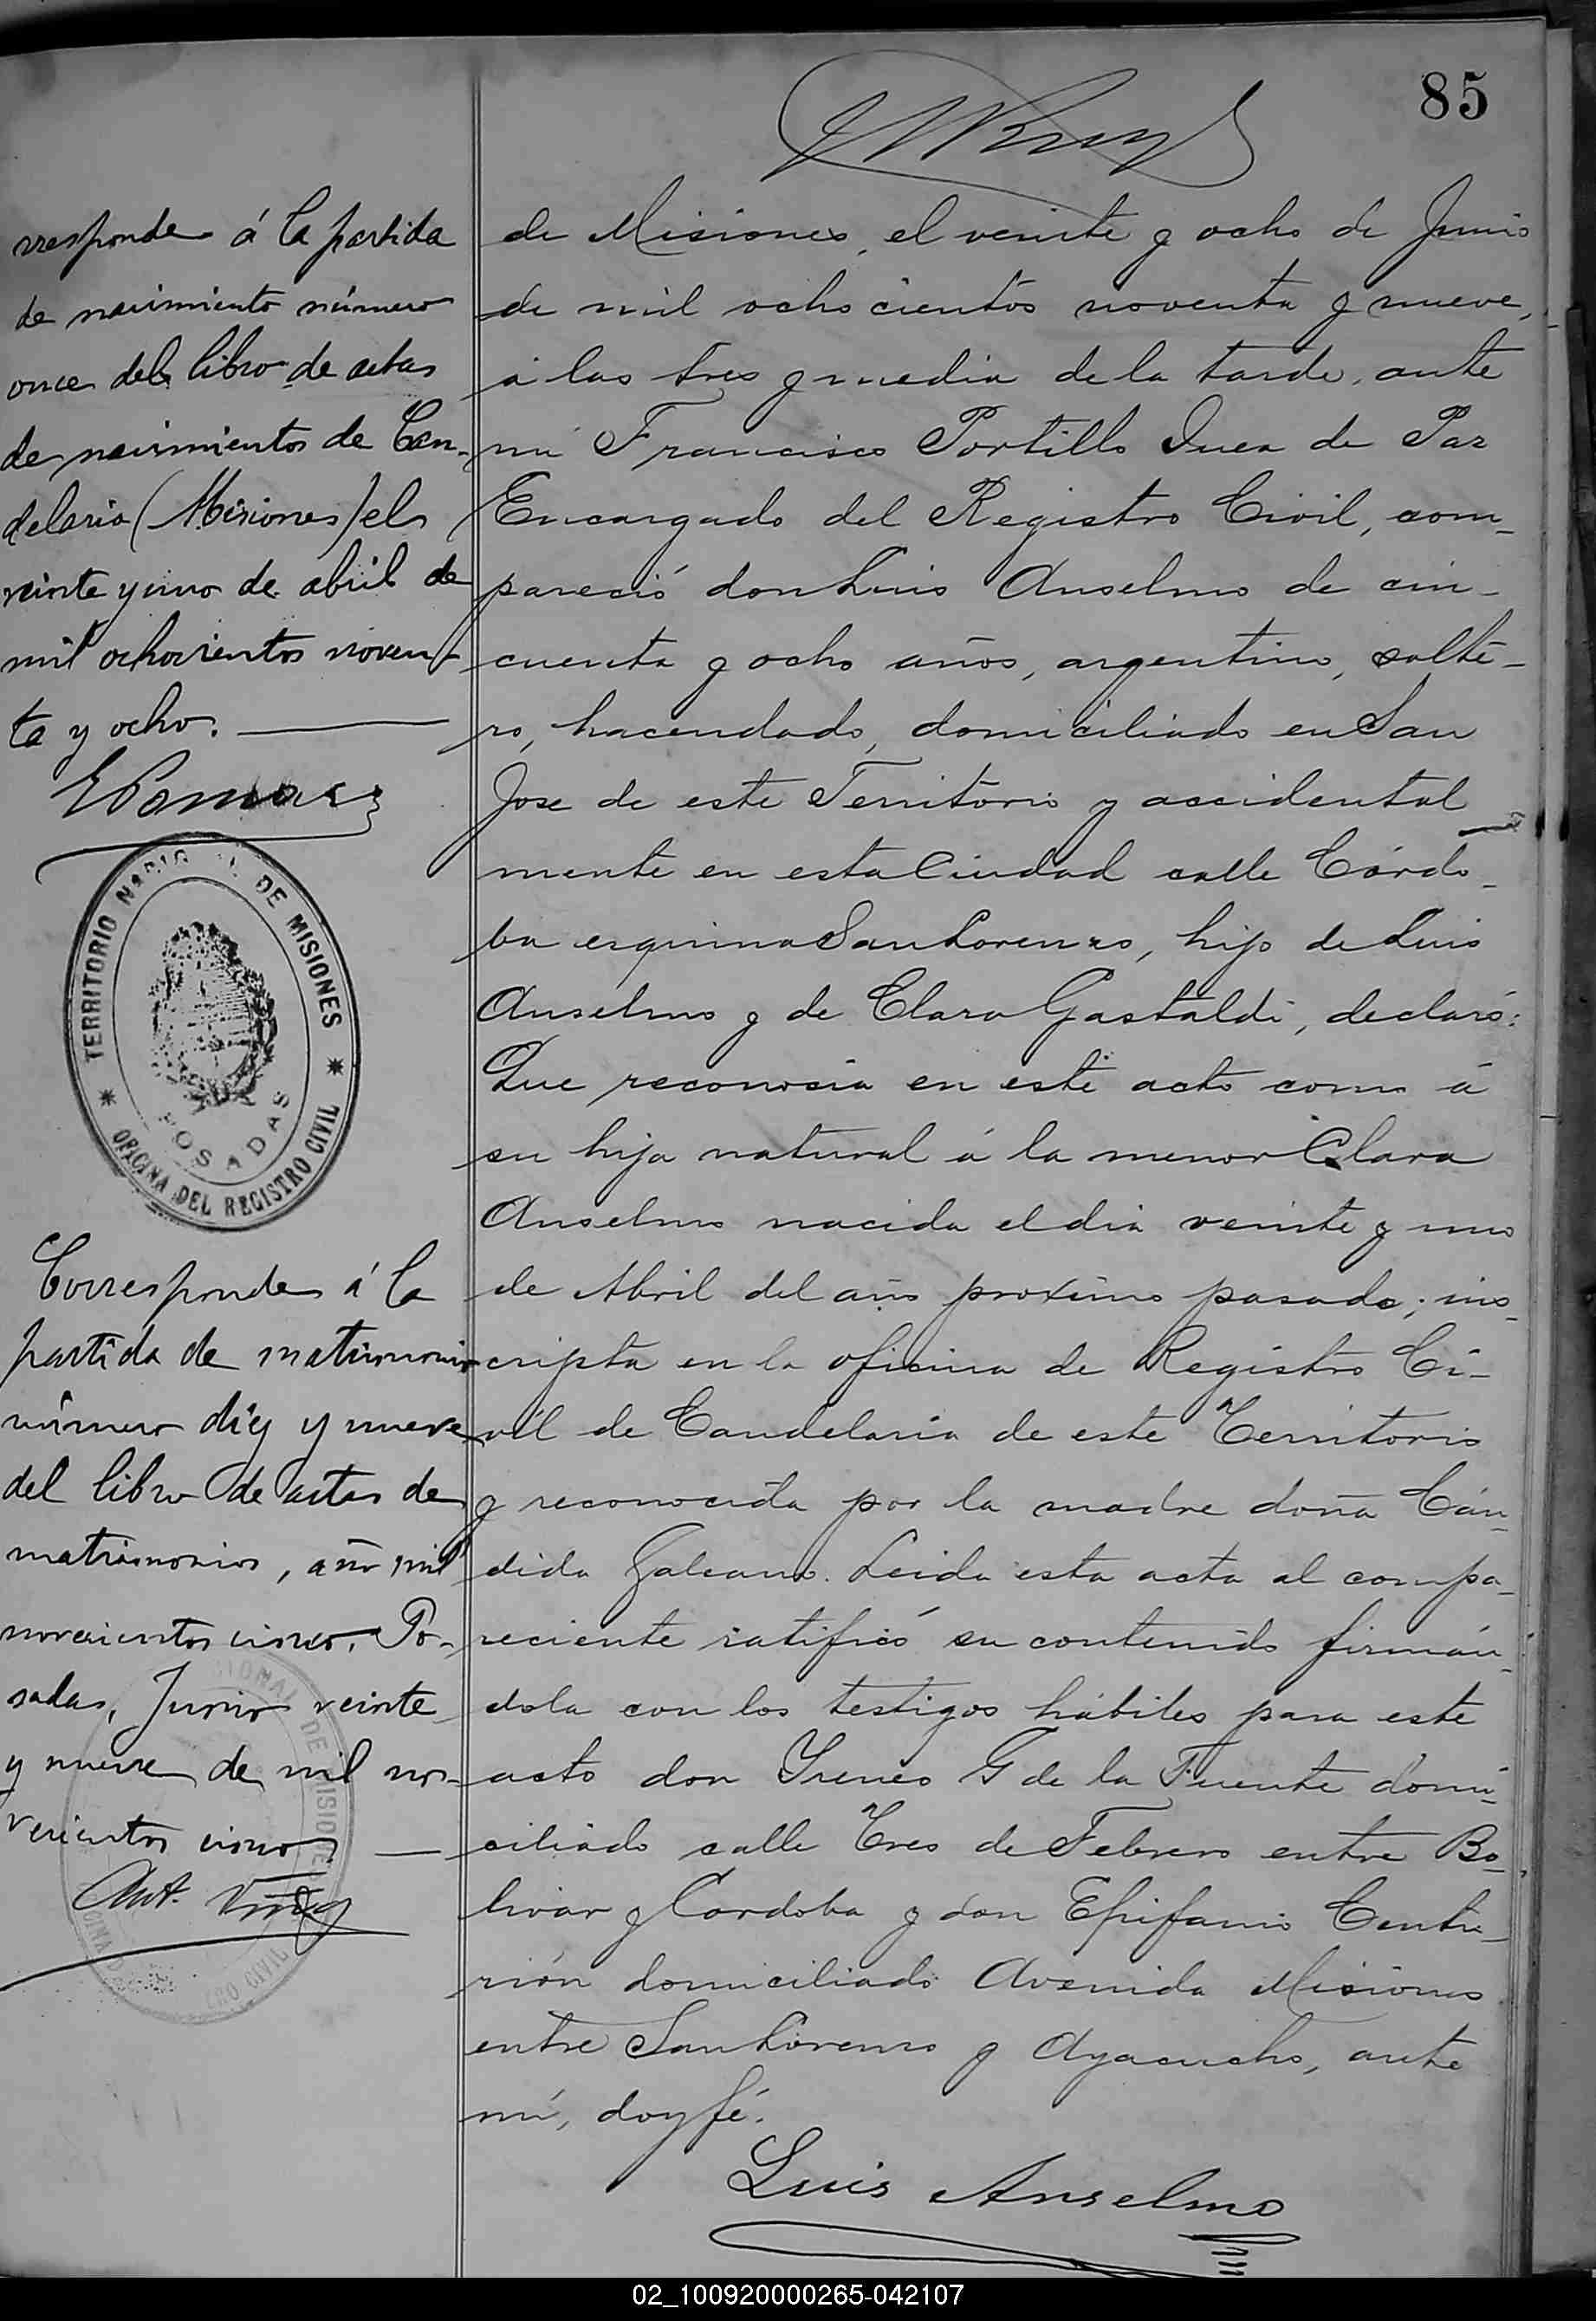 85
rresponde á la partida
de nacimiento número
once del libro de actas
de nacimientos de Can-
delaria (Misiones) el
veinte y uno de abril de
mil ochocientos noven-
ta y ocho.
TERRITORIO NACIONAL DE MISIONES
POSADAS
OFICINA DEL REGISTRO CIVIL
Corresponde á la
partida de matrimonio
número diez y nueve
del libro de actas de
matrimonios, año mil
novecientos cinco. Po-
sadas, Junio veinte
y nueve de mil no-
vecientos cinco
de Misiones, el veinte y ocho de Junio
de mil ocho cientos noventa y nueve,
a las tres y media de la tarde, ante
mi Francisco Portillo Juez de Paz
Encargado del Registro Civil, com-
pareció don Luis Anselmo de cin-
cuenta y ocho años, argentino, solte-
ro, hacendado, domiciliado en San
Jose de este Territorio y accidental
mente en esta Ciudad calle Córdo-
ba esquina San Lorenzo, hijo de Luis
Anselmo y de Clara Gastaldi, declaró:
Que reconosia en este acto como á
su hija natural á la menor Clara
Anselmo nacida el dia veinte y uno
de Abril del año proximo pasado; ins-
cripta en la oficina de Registro Ci-
vil de Candelaria de este Territorio
y reconocida por la madre doña Cán-
dida Galeano. Leida esta acta al compa-
reciente ratificó su contenido firmán-
dola con los testigos hábiles para este
acto don Ireneo G de la Fuente domi-
ciliado calle Tres de Febrero entre Bo-
livar y Cordoba y don Epifanio Centu-
rión domiciliado Avenida Misiones
entre San Lorenzo y Ayacucho, ante
mi, doy fé.
Luis Anselmo
02_100920000265-042107